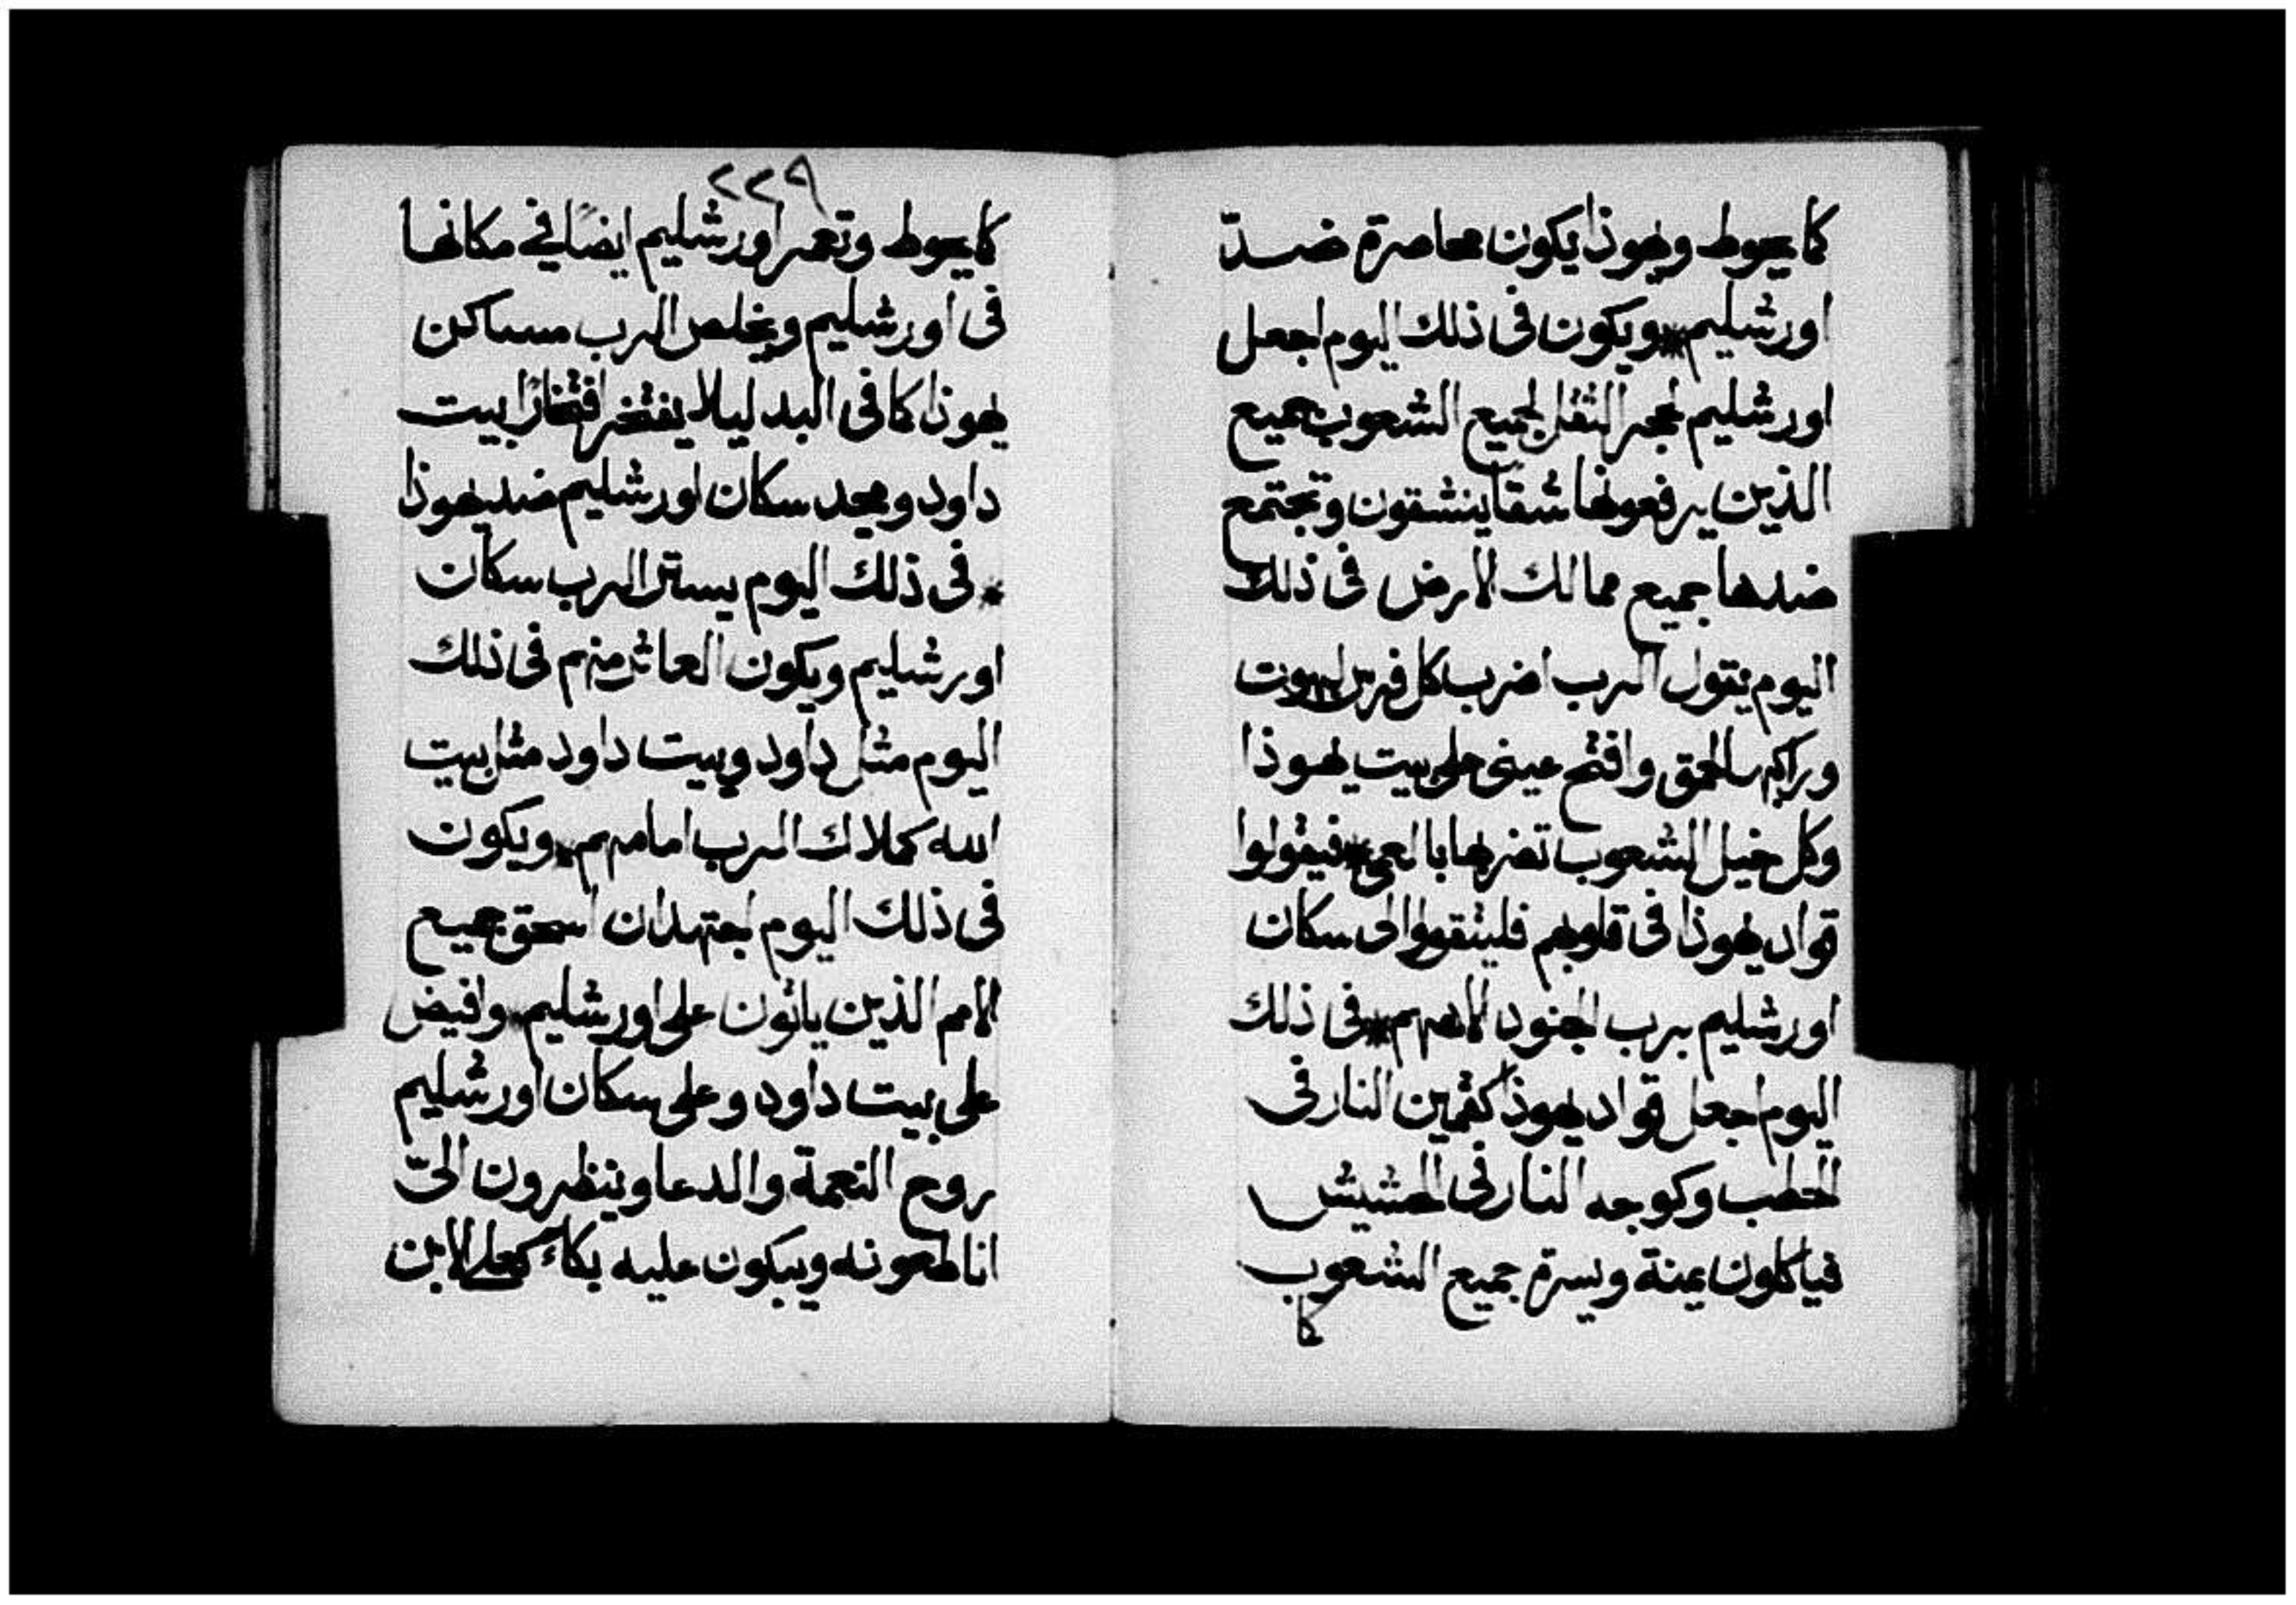 كما يحوط ويهوذا يكون محاصرة ضدّ
اورشليم * ويكون فى ذلك اليوم اجعل
اورشليم لحجر الثقل لجميع الشعوب جميع
الذين يرفعونها شقًا ينشقون وتجتمع
ضدها جميع ممالك الارض فى ذلك
اليوم يقول الرب اضرب كل فرس
وراكبه بالحمق وافتح عينى على بيت يهوذا
وكل خيل الشعوب تضربها بالعمى * فيقولوا
قواد يهوذا فى قلوبهم فليتقووا لى سكان
اورشليم برب الجنود الاههم * فى ذلك
اليوم اجعل قواد يهوذا كقمين النار فى
الحطب وكوجه النار فى الحشيش
فياكلون يمنة ويسرة جميع الشعوب
كما
٢٢٩
كما يحوط وتعمر اورشليم ايضًا فى مكانها
فى اورشليم ويخلص الرب مساكن
يهوذا كما فى البد ليلا يفتخر افتخارًا بيت
داود ومجد سكان اورشليم ضد يهوذا
* فى ذلك اليوم يستر الرب سكان
اورشليم ويكون العاثر منهم فى ذلك
اليوم مثل داود وبيت داود مثل بيت
الله كملاك الرب امامهم * ويكون
فى ذلك اليوم اجتهد ان اسحق جميع
الامم الذين ياتون على اورشليم * وافيض
على بيت داود وعلى سكان اورشليم
روح النعمة والدعا وينظرون الىّ
انا طعونه ويبكون عليه بكاء كعلى الابن